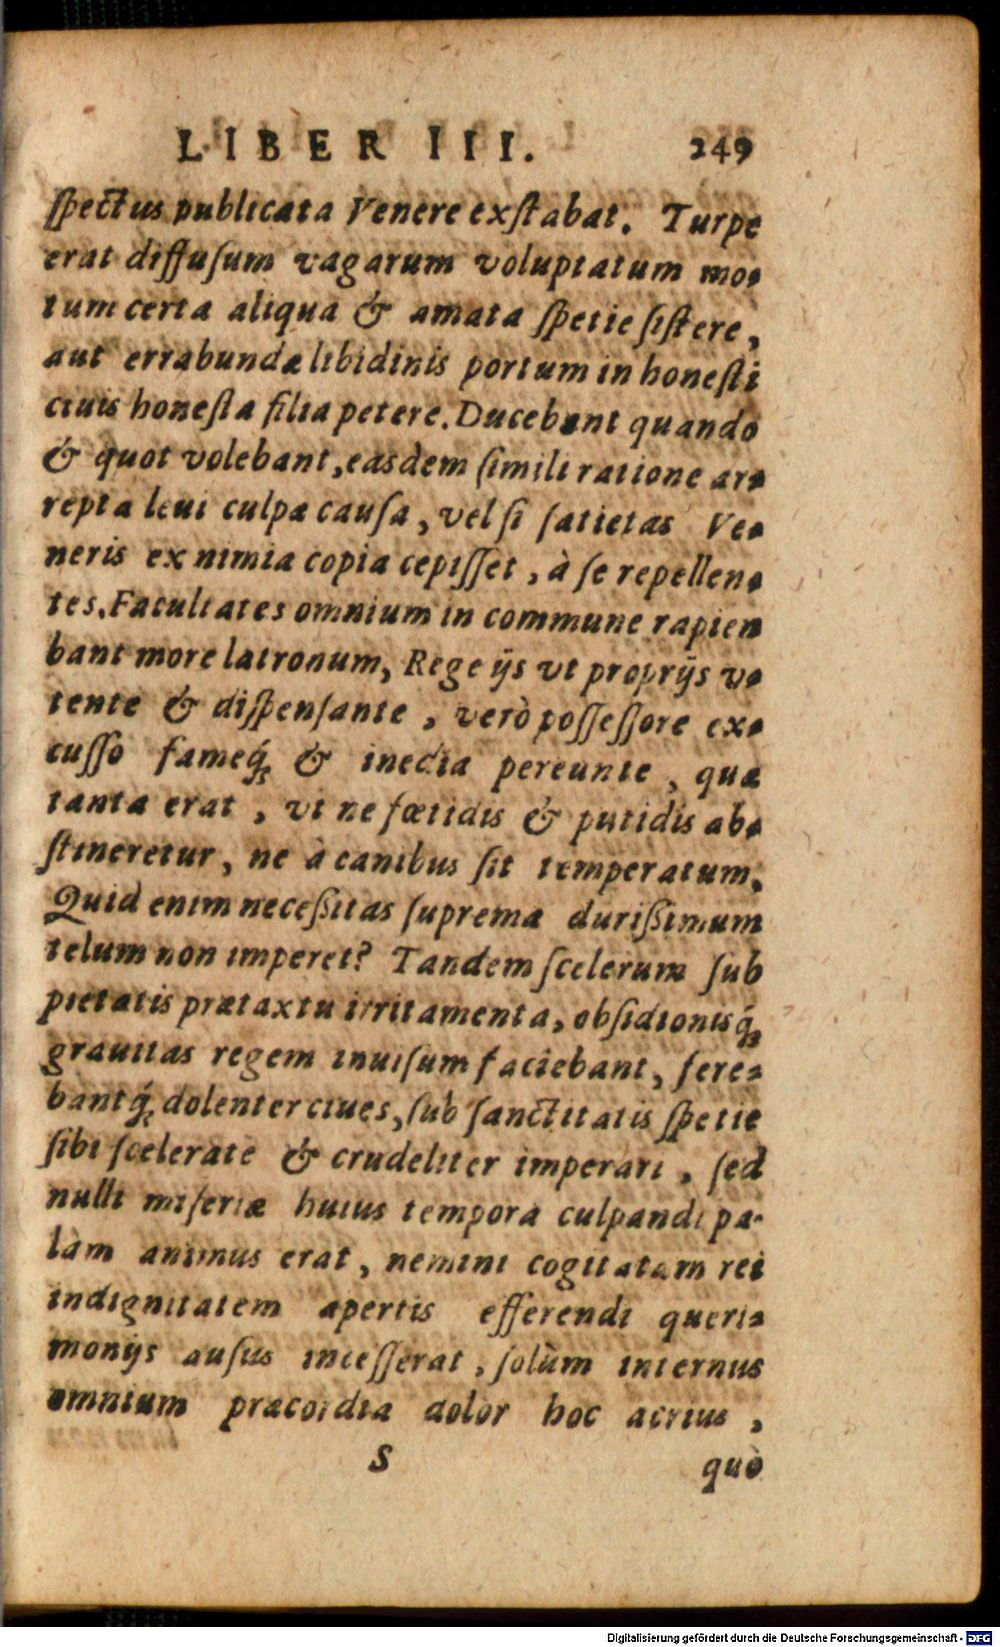 LIBER III. 249
ſpectus publicata Venere exſtabat. Turpe
erat diffuſum vagarum voluptatum mo-
tum certa aliqua & amata ſpetie ſiſtere,
aut errabundæ libidinis portum in honeſti
ciuis honeſta filia petere. Ducebant quando
& quot volebant, easdem ſimili ratione ar-
repta leui culpæ cauſa, vel ſi ſatietas Ve-
neris ex nimia copia cepiſſet, à ſe repellen-
tes. Facultates omnium in commune rapien
bant more latronum, Rege ijs vt proprijs v-
tente & diſpenſante, verò poſſeſſore ex-
cuſſo fameq́; & inedia pereunte, quæ
tanta erat, vt ne fœtidis & putidis ab-
ſtineretur, ne à canibus ſit temperatum.
Quid enim neceßitas ſupremæ durißimum
telum non imperet? Tandem ſcelerum ſub
pietatis prætaxtu irritamenta, obſidionisq́;
grauitas regem inuiſum faciebant, fere-
bantq́; dolenter ciues, ſub ſanctitatis ſpetie
ſibi ſcelerate & crudeliter imperari, ſed
nulli miſeriæ huius tempora culpandi pa-
lam animus erat, nemini cogitatam rei
indignitatem apertis efferendi queri-
monijs auſus inceſſerat, ſolùm internus
omnium præcordia dolor hoc acrius,
S quò
Digitalisierung gefördert durch die Deutsche Forschungsgemeinschaft - DFG